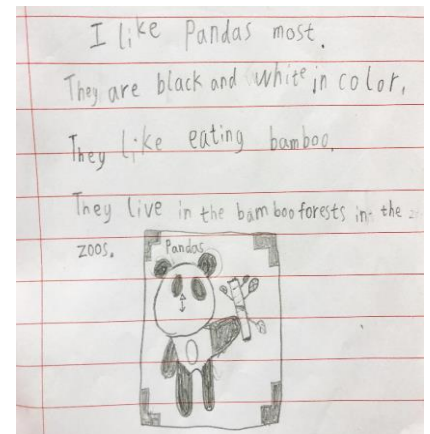 I like Pandas most.
They are black and white in color,
They like eating bamboo.
They live in the bamboo forests in the
zoos.
Pandas